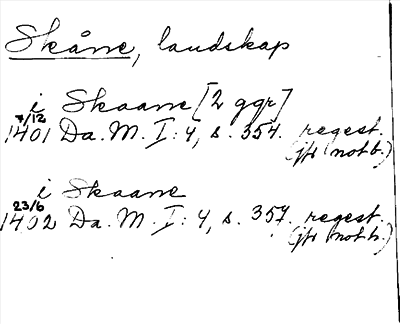 Skåne, landskap
i Skaane [2 ggr]
7/12
1401 Da. M. I: 4, s. 354. regest.
(jfr not b.)
i Skaane
23/6
1402 Da. M. I: 4, s. 357. regest.
(jfr not h.)